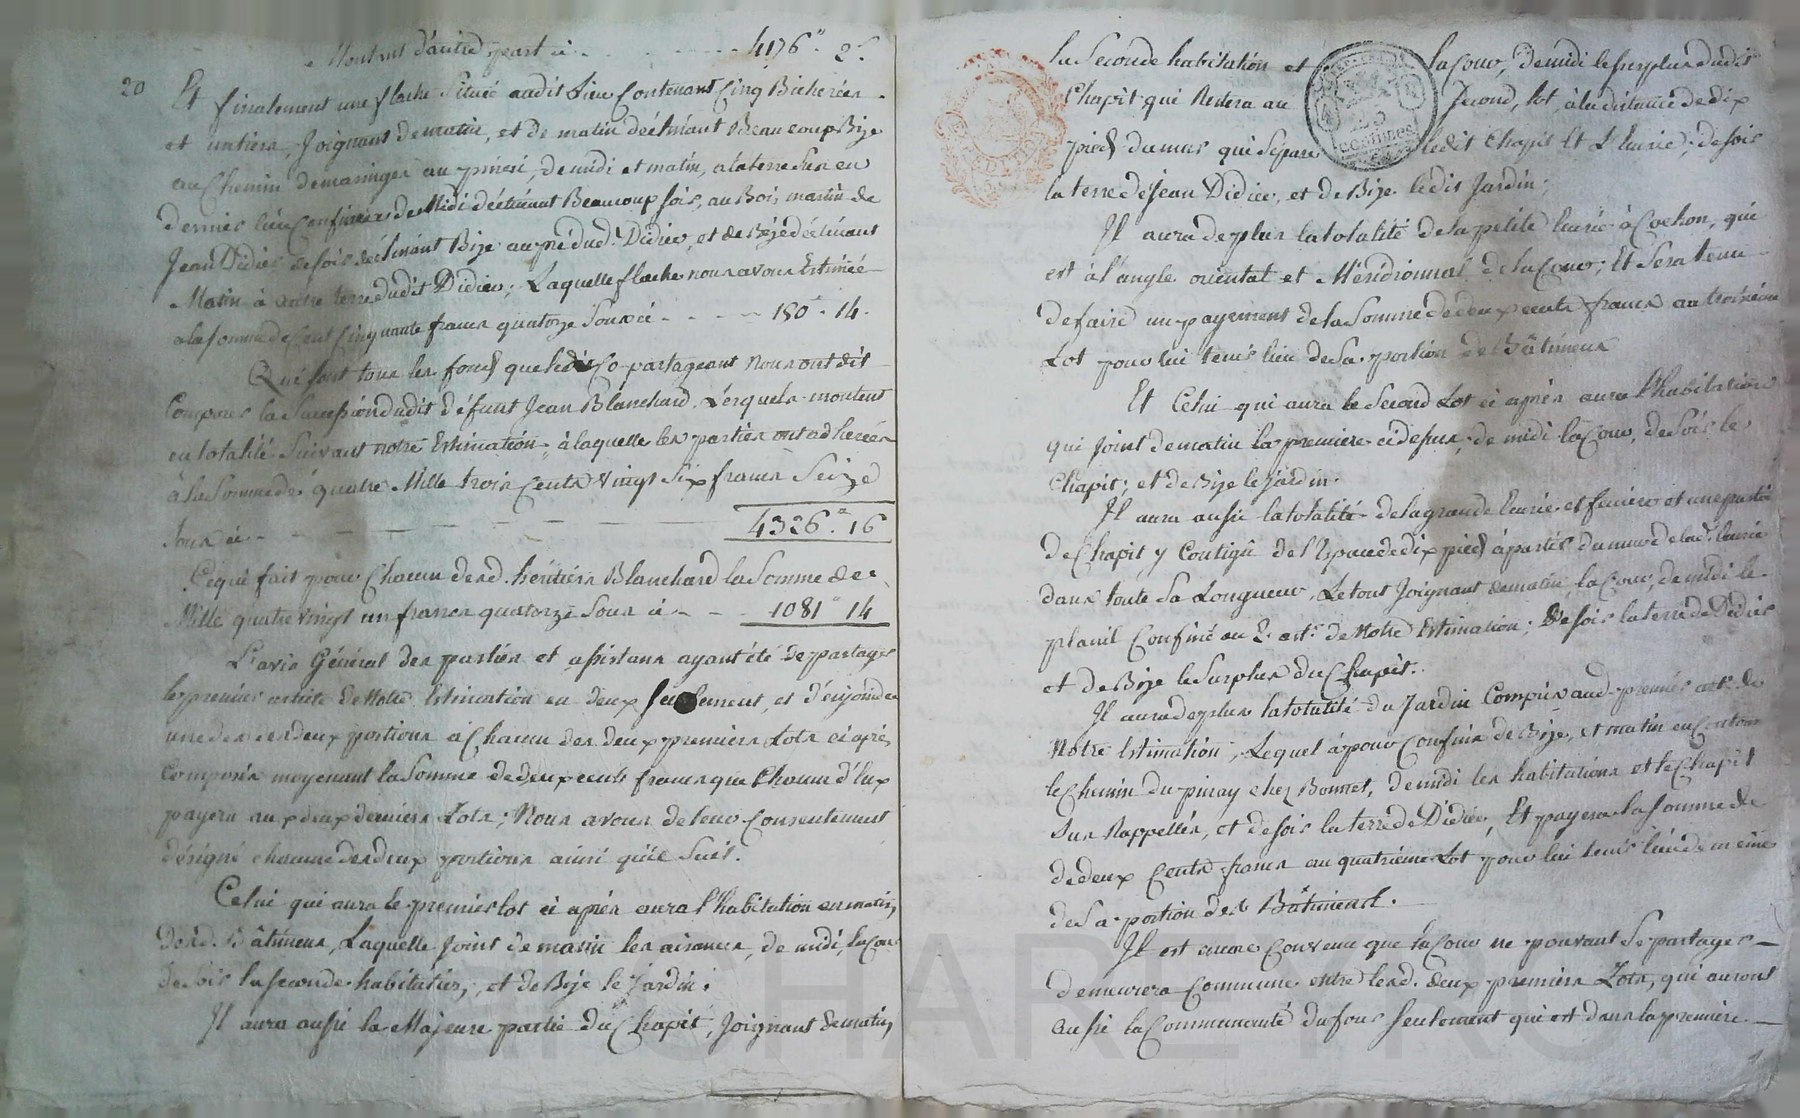 Montant d'autre part ci - - - - 4176" 2s
20 Et finalement une flache Située audit Lieu Contenant Cinq Bicherées
et un tiers, Joignant de matin, et de matin déclinant Beaucoup Bize
au Chemin de maringes au pinay, de midi et matin, a la terre Sus en
dernier lieu Confinée de Midi déclinant Beaucoup soir, au Bois martin de
Jean Didier de soir déclinant Bize au pré dud. Didier, et de Bize déclinant
Matin à autre terre dudit Didier; Laquelle flache nous avons Estimée
a la somme de Cent Cinquante francs quatorze Sous ci - - - - 150" 14.
Qui sont tous les fonds que lesdits Co-partageans Nous ont dit
Composer la Succession dudit défunt Jean Blanchard, Lesquels montent
en totalité Suivant notre Estimation, à laquelle les parties ont adherées
à la Somme de quatre Mille trois Cents vingt Six francs Seize
Sous ci - - - - 4326" 16
Ce qui fait pour Chacun desd. héritiers Blanchard la Somme de
Mille quatre vingt un francs quatorze Sous ci - - - 1081" 14
L'avis Général des parties et assistans ayant été de partager
le premier article de Notre Estimation en deux seulement, et d'enjoindre
une des deux portions à Chacun des deux premiers Lots ci après
Composés moyenant la Somme de deux cents francs que Chacun d'eux
payera aux deux derniers Lots; Nous avons de leur Consentement
désigné chacune des deux portions ainsi qu'il Suit.
Celui qui aura le premier lot ci après aura l'habitation en matin,
desd. Bâtimens, Laquelle Joint de matin les aisances, de midi, la Cour
de soir la seconde habitation, et de Bize le Jardin;
Il aura aussi la Majeure partie du Chapit, Joignant de matin,
la Seconde habitation et la Cour, de midi le surplus dudit
Chapit qui Restera au Second, lot, à la distance de dix
pieds du mur qui Sépare ledit Chapit Et L'Ecurie; de soir
la terre de Jean Didier, et de Bize ledit Jardin;
Il aura de plus la totalité de la petite Ecurie à Cochon, qui
est à l'angle oriental et Méridionnal de la Cour; Et Sera tenu
de faire un payement de la Somme de deux cents francs au troisième
Lot pour lui tenir lieu de Sa portion de Bâtimens
Et Celui qui aura le Second Lot ci après aura l'habitation
qui Joint de matin la premiere ci dessus, de midi la Cour, de Soir le
Chapit; et de Bize le Jardin.
Il aura aussi la totalité de la grande Ecurie et feniere et une partie
de Chapit y Contigue de l'Espace de dix pieds à partir du mur de lad. Ecurie
dans toute Sa Longueur, Le tout Joignant de matin la Cour, de midi le
planil Confiné au 2e artle de Notre Estimation; De soir la terre de Didier
et de Bize le Surplus du Chapit.
Il aura de plus la totalité du Jardin Compris aud. premier artle de
Notre Estimation, Lequel a pour Confins de Bize, et matin en Contour
le Chemin du pinay chez Bonnet, de midi les habitations et le Chapit
Sus Rappellés, et de soir la terre de Didier, Et payera la somme de
de deux Cents francs au quatrième Lot pour lui tenir lieu de même
de Sa portion des Bâtimens.
Il est encore Convenu que la Cour ne pouvant Se partager
demeurera Commune entre lesd. deux premiers Lots, qui auront
aussi la Communauté du four seulement qui est dans la premiere